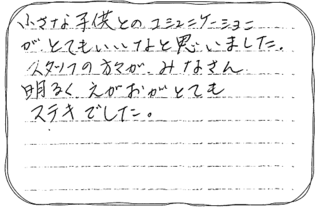 小さな子供とのコミュニケーション
がとてもいいなと思いました。
スタッフの方々が、みなさん
明るく えがおがとても
ステキでした。